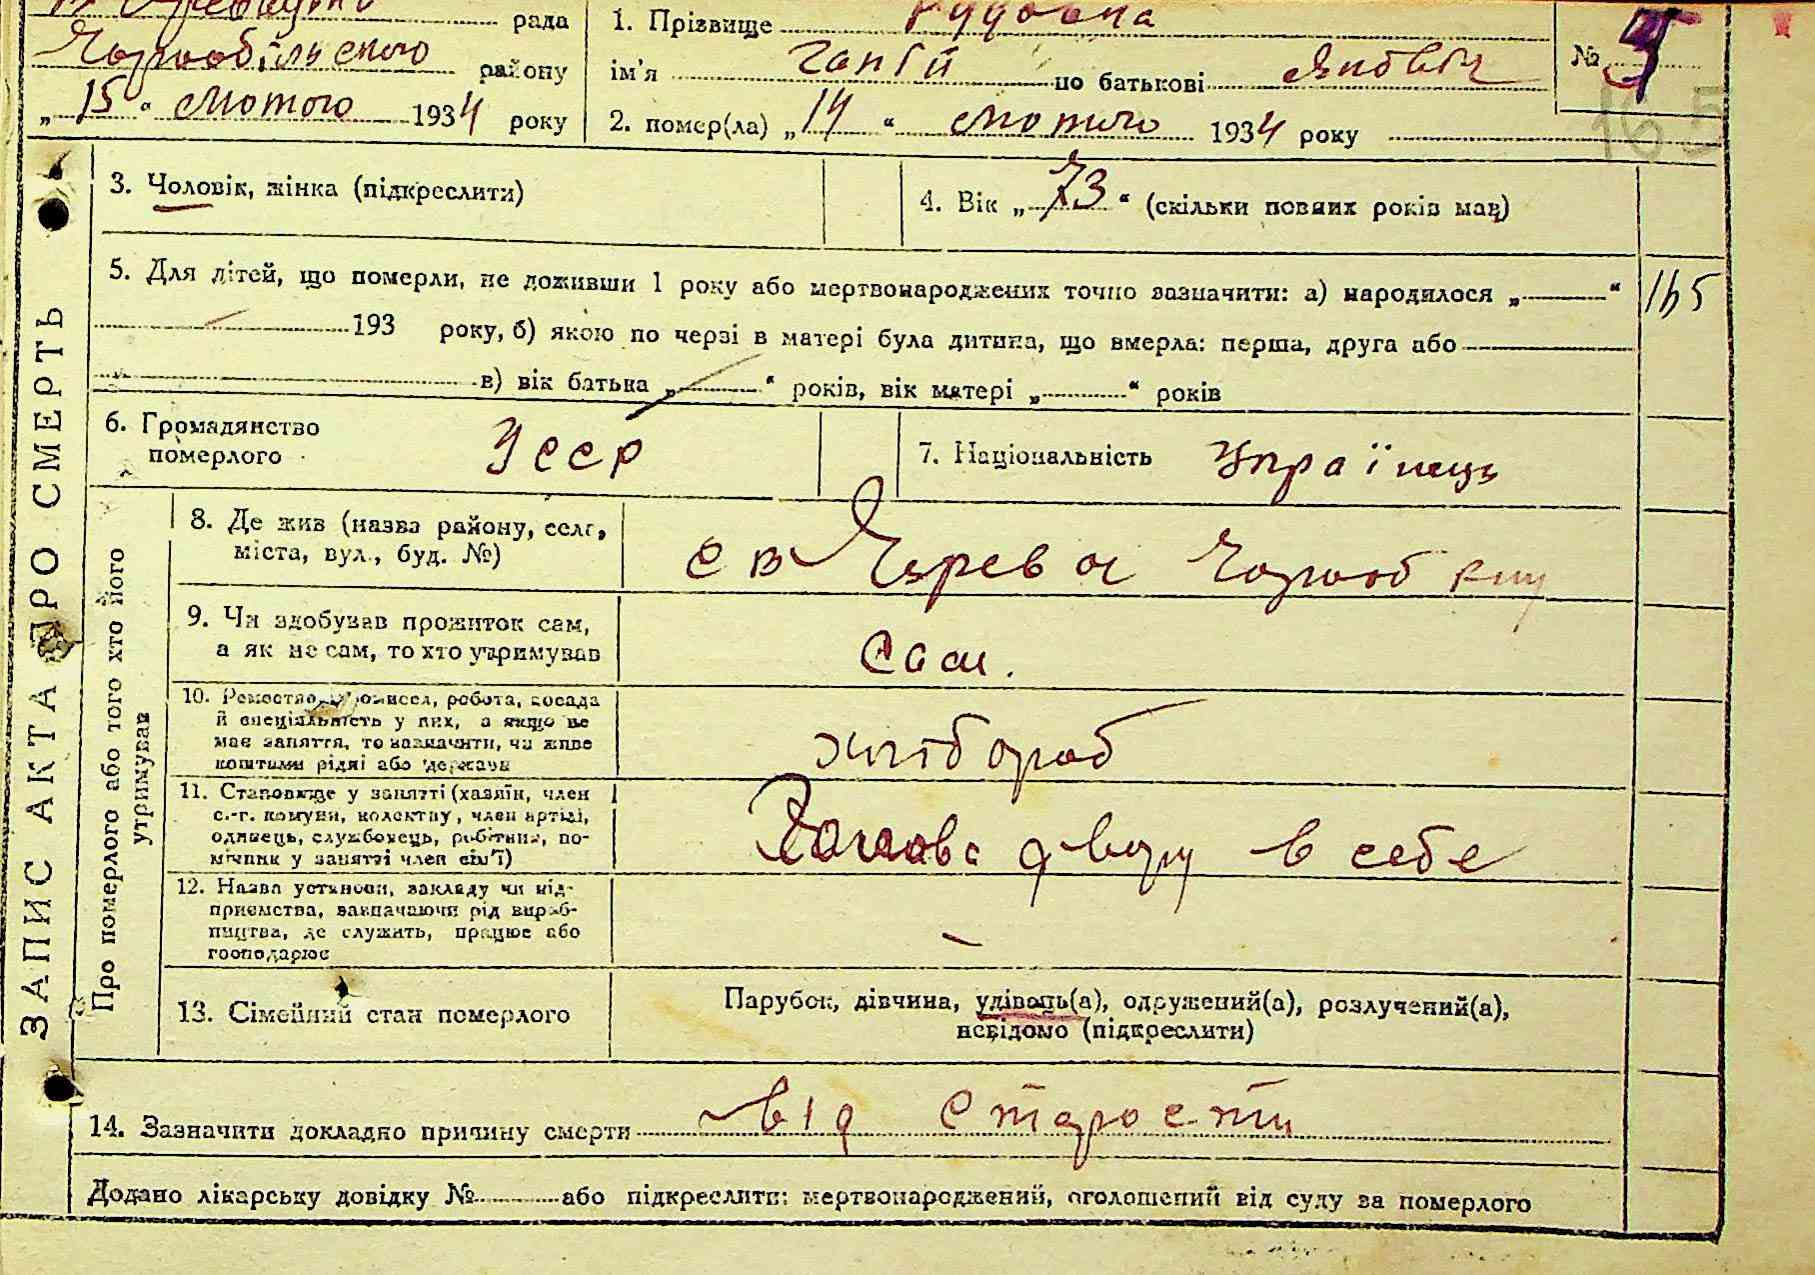 рада
Чорнобільського району
„15“ лютого 1934 року
1. Прізвище
ім'я по батькові
2. помер(ла) „14“ лютого 1934 року
№ 5
165
3. Чоловік, жінка (підкреслити)
4. Вік „73“ (скільки повних років мав)
5. Для дітей, що померли, не доживши 1 року або мертвонароджених точно зазначити: а) народилося „ “
165
193 року, б) якою по черзі в матері була дитина, що вмерла: перша, друга або
в) вік батька „ “ років, вік матері „ “ років
6. Громадянство
померлого
УССР
7. Національність Українець
ЗАПИС АКТА ПРО СМЕРТЬ
Про померлого або того хто його
утримував
8. Де жив (назва району, села,
міста, вул., буд. №)
с
9. Чи здобував прожиток сам,
а як не сам, то хто утримував
сам.
10. Ремество, промисел, робота, посада
й спеціяльність у них, а якщо не
має заняття, то зазначити, чи живе
коштами рідні або держави
хлібороб
11. Становище у занятті (хазяїн, член
с.-г. комуни, колективу, член артілі,
одинець, службовець, робітник, по-
мічник у занятті член сім'ї)
Голова двору в себе
12. Назва установи, закладу чи під-
приємства, зазначаючи рід вироб-
ництва, де служить, працює або
господарює
–
13. Сімейний стан померлого
Парубок, дівчина, удівець(а), одружений(а), розлучений(а),
невідомо (підкреслити)
14. Зазначити докладно причину смерти від старости
Додано лікарську довідку № або підкреслити: мертвонароджений, оголошений від суду за померлого